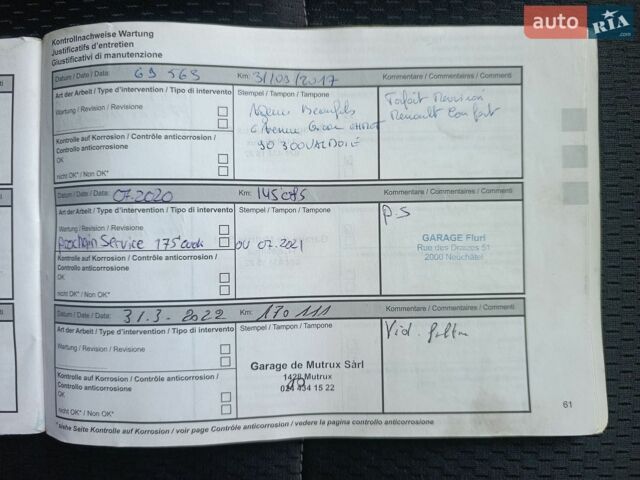 auto RIA.com
Kontrollnachweise Wartung
Justificatifs d'entretien
Giustificativi di manutenzione
Datum / Date / Data: 69 568 Km: 31/03/2017 Kommentare / Commentaires / Commenti
Art der Arbeit / Type d'intervention / Tipo di intervento Stempel / Tampon / Tampone Forfait Revision
Wartung / Revision / Revisione Renault Confort
Kontrolle auf Korrosion / Contrôle anticorrosion /
Controllo anticorrosione 90 300 VALDOIE
OK
nicht OK* / Non OK*
Datum / Date / Data: 07.2020 Km: 145'085 Kommentare / Commentaires / Commenti
Art der Arbeit / Type d'intervention / Tipo di intervento Stempel / Tampon / Tampone P.S
Wartung / Revision / Revisione
Prochain Service 175 ou 07.2021
GARAGE Fluri
Rue des Draizes 51
2000 Neuchâtel
Kontrolle auf Korrosion / Contrôle anticorrosion /
Controllo anticorrosione
OK
nicht OK* / Non OK*
Datum / Date / Data: 31.3.2022 Km: 170 111 Kommentare / Commentaires / Commenti
Art der Arbeit / Type d'intervention / Tipo di intervento Stempel / Tampon / Tampone Vid. filtre
Wartung / Revision / Revisione
Garage de Mutrux Sàrl
1428 Mutrux
024 434 15 22
Kontrolle auf Korrosion / Contrôle anticorrosion /
Controllo anticorrosione
OK
nicht OK* / Non OK*
*siehe Seite Kontrolle auf Korrosion / voir page Contrôle anticorrosion / vedere la pagina controllo anticorrosione
61